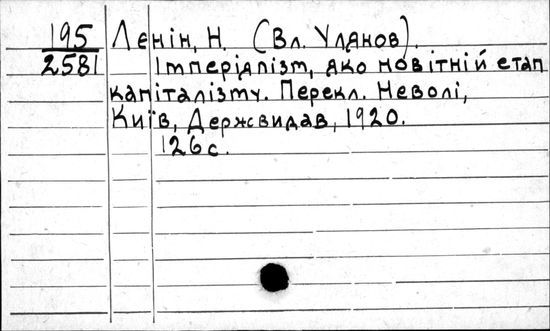 195
2581
Ленін, Н. (Вл. Улянов).
Імперіялізм, яко новітній етап
капіталізму. Перекл. Неволі,
Київ, Держвидав, 1920.
126 с.